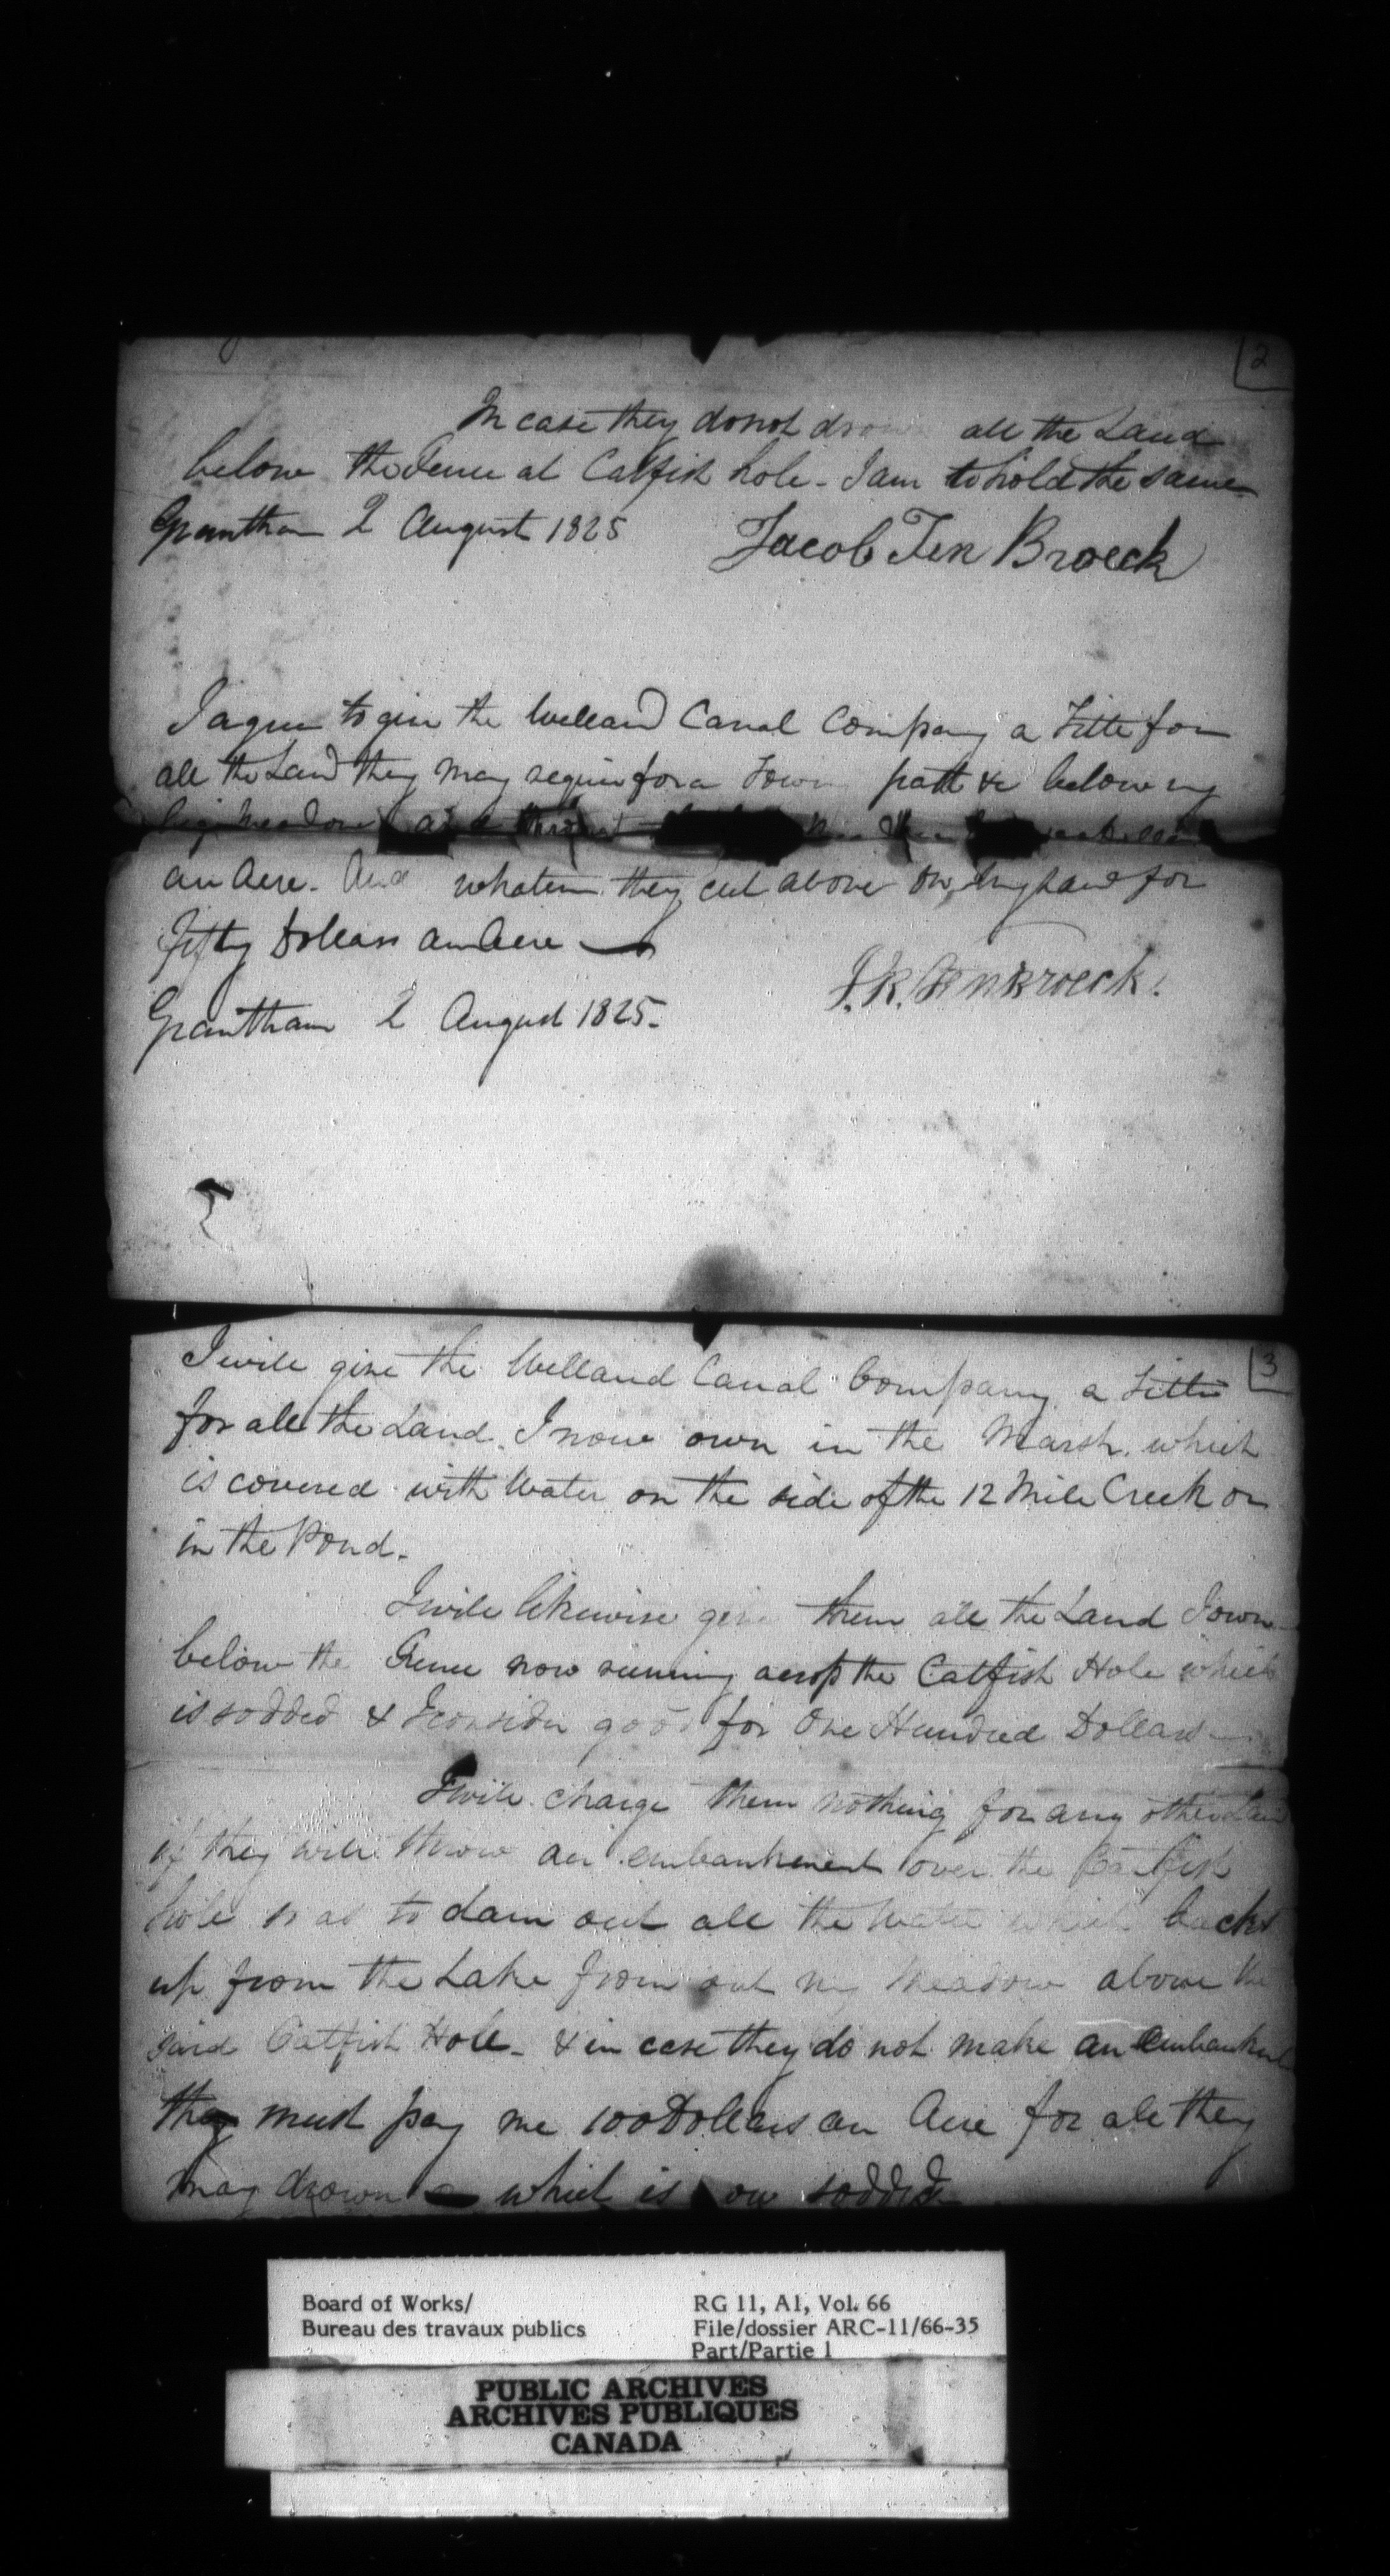 2
In case they do not drown all the Land
below the Fence at Catfish hole - I am to hold the same
Grantham 2 August 1825
Jacob Ten Broeck
I agree to give the Welland Canal Company a Title for
all the Land they may require for a Tow path &c below my
big Meadow
an Acre - And whatever they cut above on my Land for
fifty Dollars an Acre
J. K. Tenbroeck.
Grantham 2 August 1825.
I will give the Welland Canal Company a Title
3
for all the Land I now own in the Marsh which
is covered with Water on the side of the 12 Mile Creek or
in the Pond.
I will likewise give them all the Land I own
below the Fence now running across the Catfish Hole which
is sodded & I consider good for One Hundred Dollars
I will charge them nothing for any other
if they will throw an embankment over the Catfish
hole so as to dam out all the Water which backs
up from the Lake from out my Meadow above the
said Catfish Hole - & in case they do not make an embankment
they must pay me 100 Dollars an Acre for all they
may drown which is now sodded
Board of Works/
Bureau des travaux publics
RG 11, A1, Vol. 66
File/dossier ARC-11/66-35
Part/Partie 1
PUBLIC ARCHIVES
ARCHIVES PUBLIQUES
CANADA